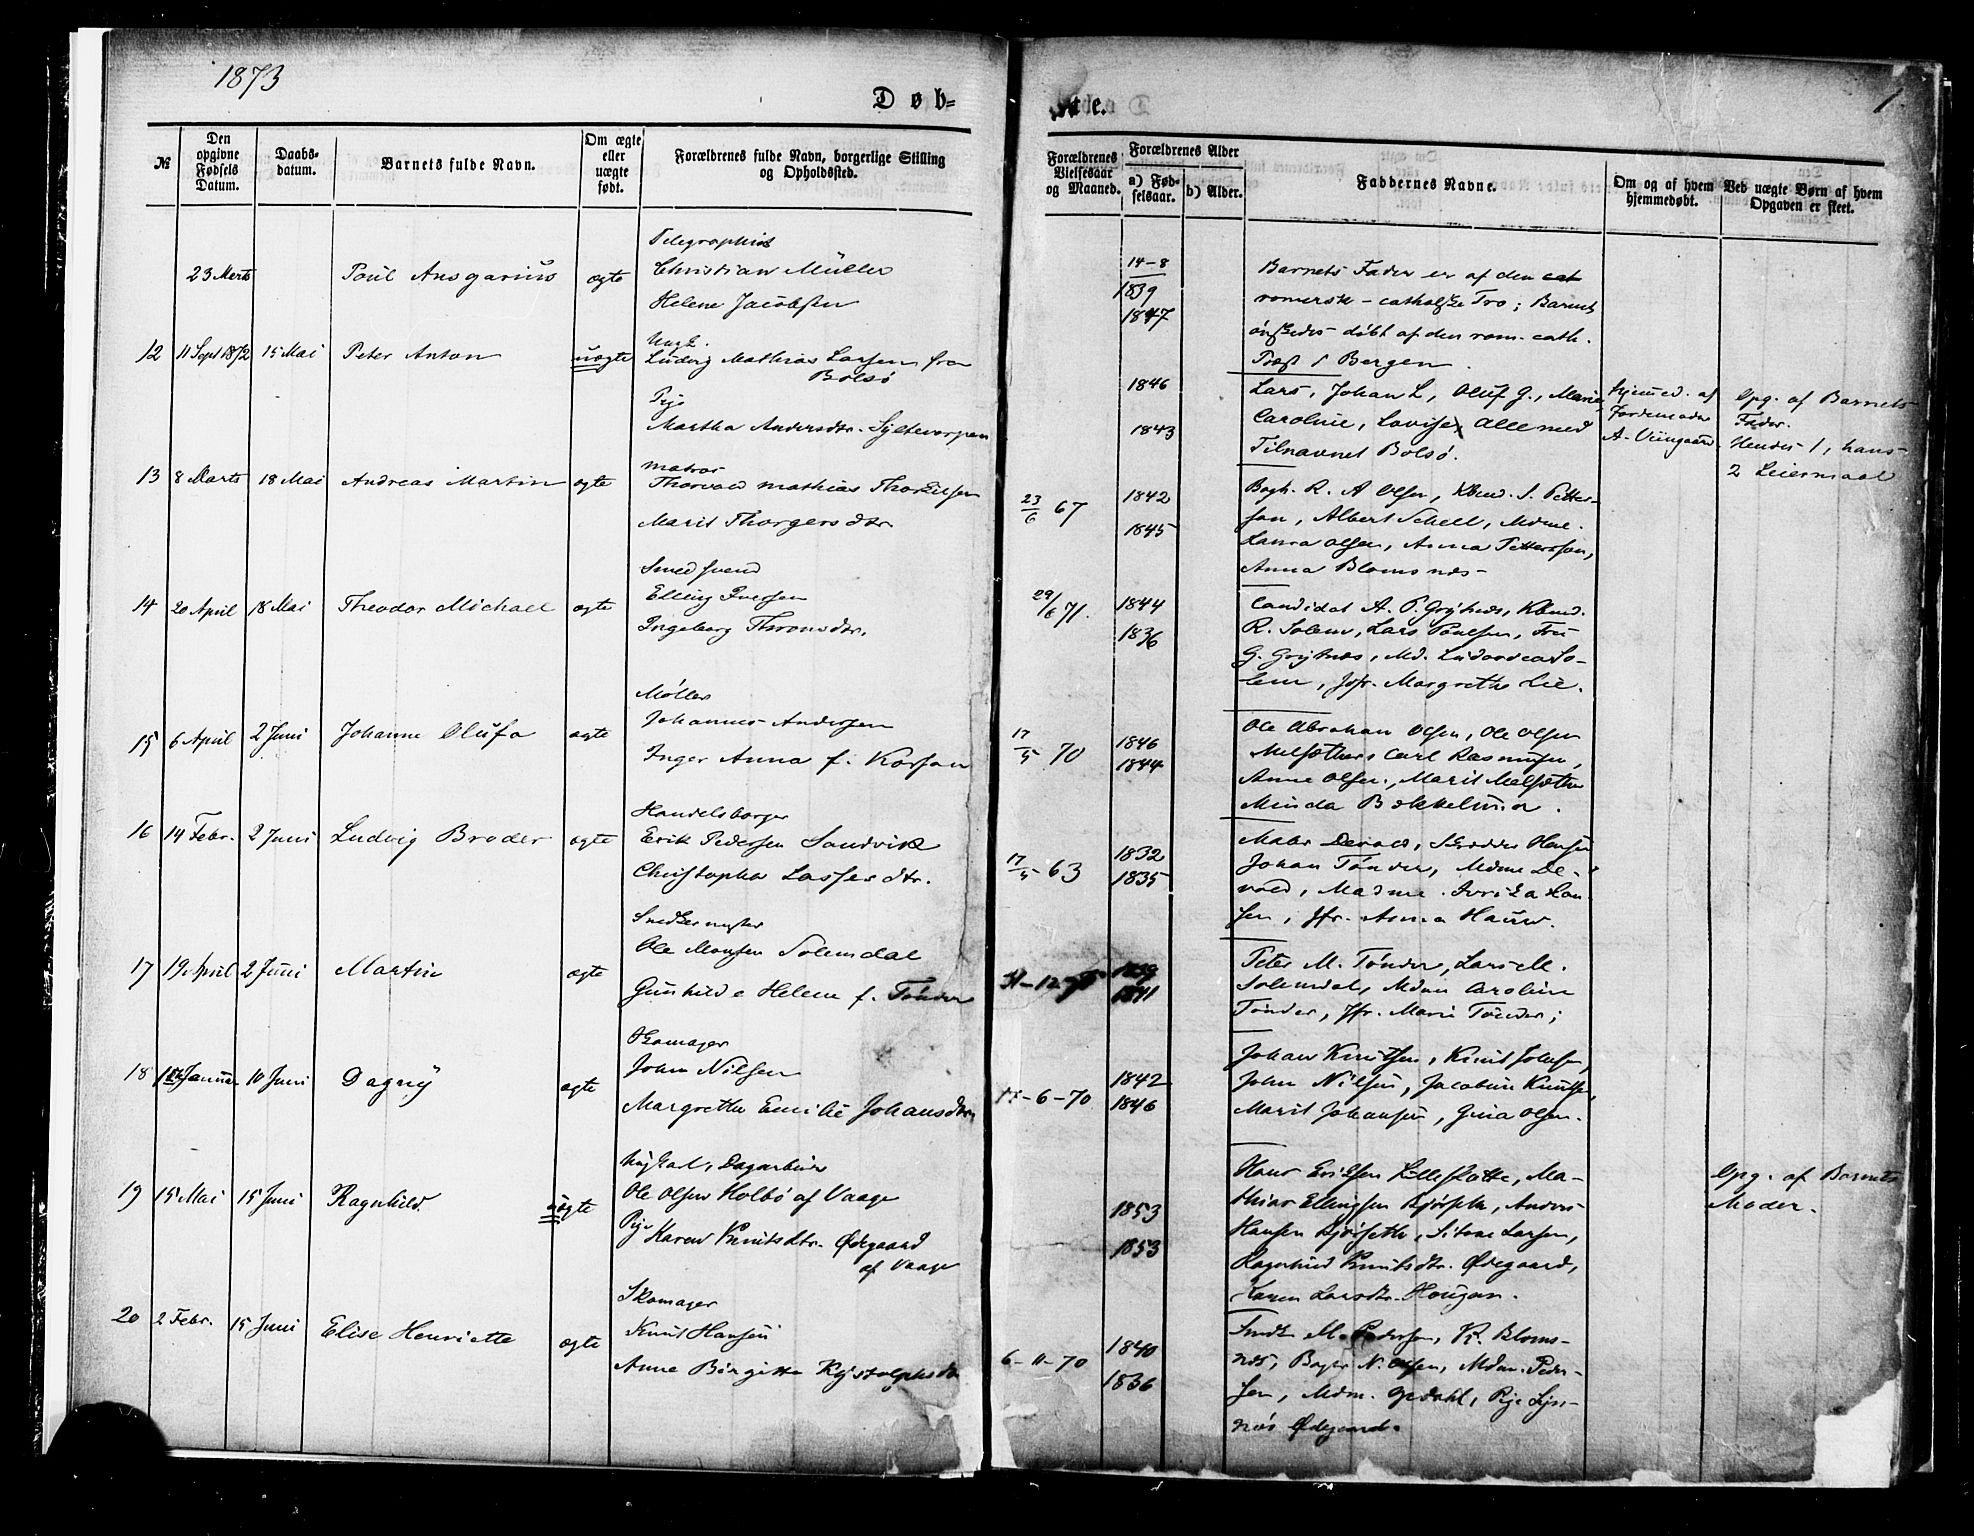 1873
Døb-
te.
1
№
Den opgivne Fødsels Datum.
Daabs-datum.
Barnets fulde Navn.
Om ægte eller uægte født.
Forældrenes fulde Navn, borgerlige Stilling og Opholdssted.
Forældrenes Vielsesaar og Maaned.
Forældrenes Alder
a) Fødselsaar.
b) Alder.
Faddernes Navne.
Om og af hvem hjemmedøbt.
Ved uægte Børn af hvem Opgaven er skeet.
23 Marts
Poul Ansgarius
ægte
Telegraphist
Christian Müller
Helene Jacobsen
14-8
1839
1847
Barnets Fader er af den cat
romersk-catholske Tro; Barnet
ønskedes døbt af den rom. cath.
Præst i Bergen.
12
11 Sept 1872
15 Mai
Peter Anton
uægte
Ungk.
Ludvig Mathias Larsen fra
Bolsø
Pige
Martha Andersdtr.
1846
1843
Lars, Johan L, Oluf G., Marie,
Caroline, Lovise, Alle med
Tilnavnet Bolsø.
hjemmed. af
Jordemoder
Opg. af Barnets
Fader.
Hendes 1, hans
2 Leiermaal
13
8 Marts
18 Mai
Andreas Martin
ægte
Matros
Thorvald Mathias Thorkilsen
Marit Thorgersdtr.
23/6 67
1842
1845
Bogh. R. A Olsen, Kbmd. S. Petter-
son, Albert Schell, Mdme.
Laura Olsen, Anna Petterson,
Anna Blomsnæs
14
20 April
18 Mai
Theodor Michael
ægte
Smedsvend
Elling Iversen
Ingeborg Thronsdtr.
29/6 71.
1844
1836
Candidat A. P. Grythnæs, Kbmd.
R. Solem, Lars Poulsen, Fru
G. Grythnæs, Md. Ludovica So-
lem, Jfr. Margrethe Lie.
15
6 April
2 Juni
Johanne Olufa
ægte
Møller
Johannes Andersen
Inger Anna f. Korsan
17/5 70
1846
1844
Ole Abraham Olsen, Ole Olsen
Melsæther, Carl Rasmusen,
Anne Olsen, Marit Melsæther
Minda Bakkelund.
16
14 Febr.
2 Juni
Ludvig Broder
ægte
Handelsborger
Erik Pedersen Sandvik
Christopha Lassesdtr.
17/5 63
1832
1835
Maler Devold, Skrædder Hansen
Johan Tønder, Mdme De-
vold, Madme. Hansen
sen, Jfr. Anna
17
19 April
2 Juni
Martin
ægte
Snedkermester
Ole Monsen Solemdal
Gunhilde Helene f. Tønder
1839
1841
Peter M. Tønder, Lars M.
Solemdal, Mdm Caroline
Tønder, Jfr. Marie Tønder;
18
Januar
10 Juni
Dagny
ægte
Skomager
John Nilsen
Margrethe Emilie Johansdtr.
-6-70
1842
1846
Johan Knutsen, Knut Johnsen,
John Nilsen, Jacobine Knutsen,
Marit Johansen, Gina Olsen.
19
15 Mai
15 Juni
Ragnhild
uægte
Ungkarl, Dagarbeider
Ole Olsen Holbø af Vaage
Pige Karen Knutsdtr. Ødegaard
af Vaage
1853
1853
Hans Eriksen Lilleslatte, Ma-
thias Ellingsen Kjørsethr, Anders
Hansen Kjørsethr, Larsen,
Ragnhild Knutsdtr. Ødegaard,
Karen Larsdtr. Haugan.
Opg. af Barnets
Moder.
20
2 Febr.
15 Juni
Elise Henriette
ægte
Skomager
Knut Hansen
Anne Birgitte
6-11-70
1840
1836
Snedk. M. Pedersen, K. Bloms-
næs, Bager N. Olsen, Mdm. Peder-
sen, Mdm. Opdahl, Pige
Ødegaard.